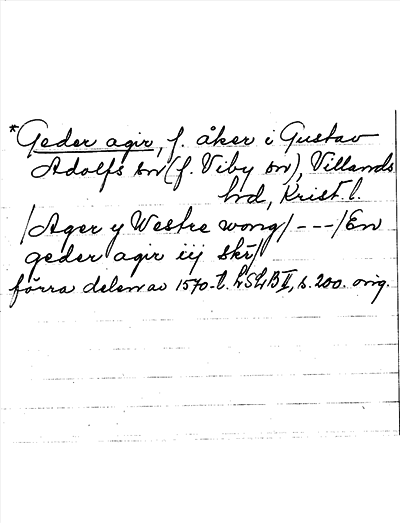 *Geder agir, f. åker i Gustav
Adolfs sn (f. Viby sn), Villands
hrd, Krist. l.
/Ager y Westre wong/ --- /En
geder agir iij skr/
förra delen av 1570-t. LSLB II, s. 200. orig.